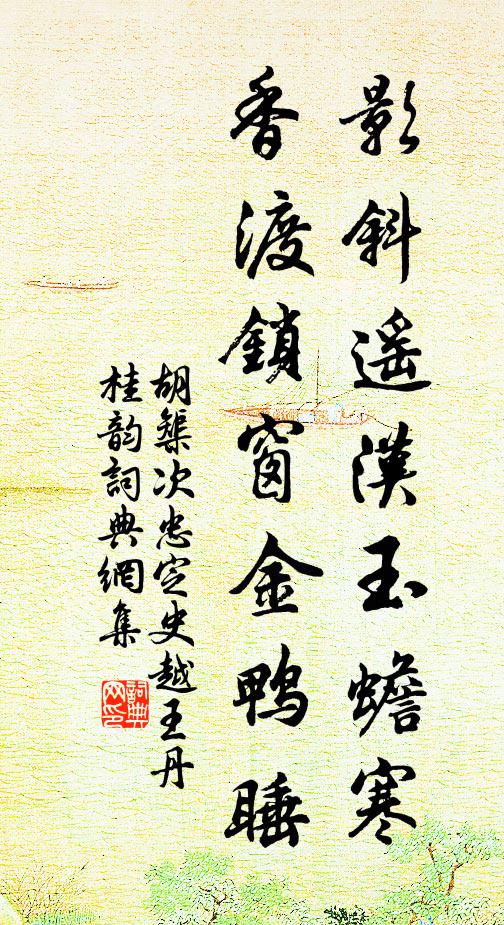 影斜遥漢玉蟾寒
香渡鎖窗金鴨睡
胡榘次忠定史越王丹
桂韵詞典網集
詞典